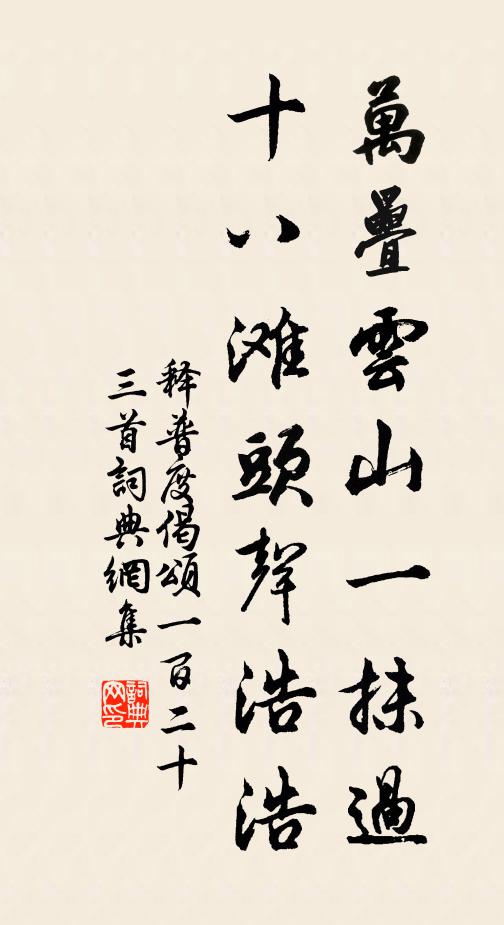 萬疊雲山一抹過
十八滩頭聲浩浩
释普度偈頌一百二十
三首詞典網集
詞典网印